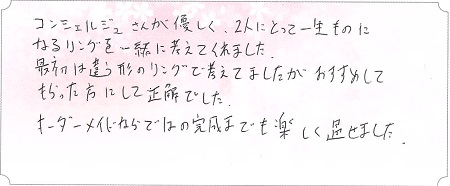 コンシェルジュさんが優しく、2人にとって一生ものに
なるリングを一緒に考えてくれました.
最初は違う形のリングで考えてましたがおすすめして
もらった方にして正解でした.
オーダーメイドならではの完成までも楽しく過せました.